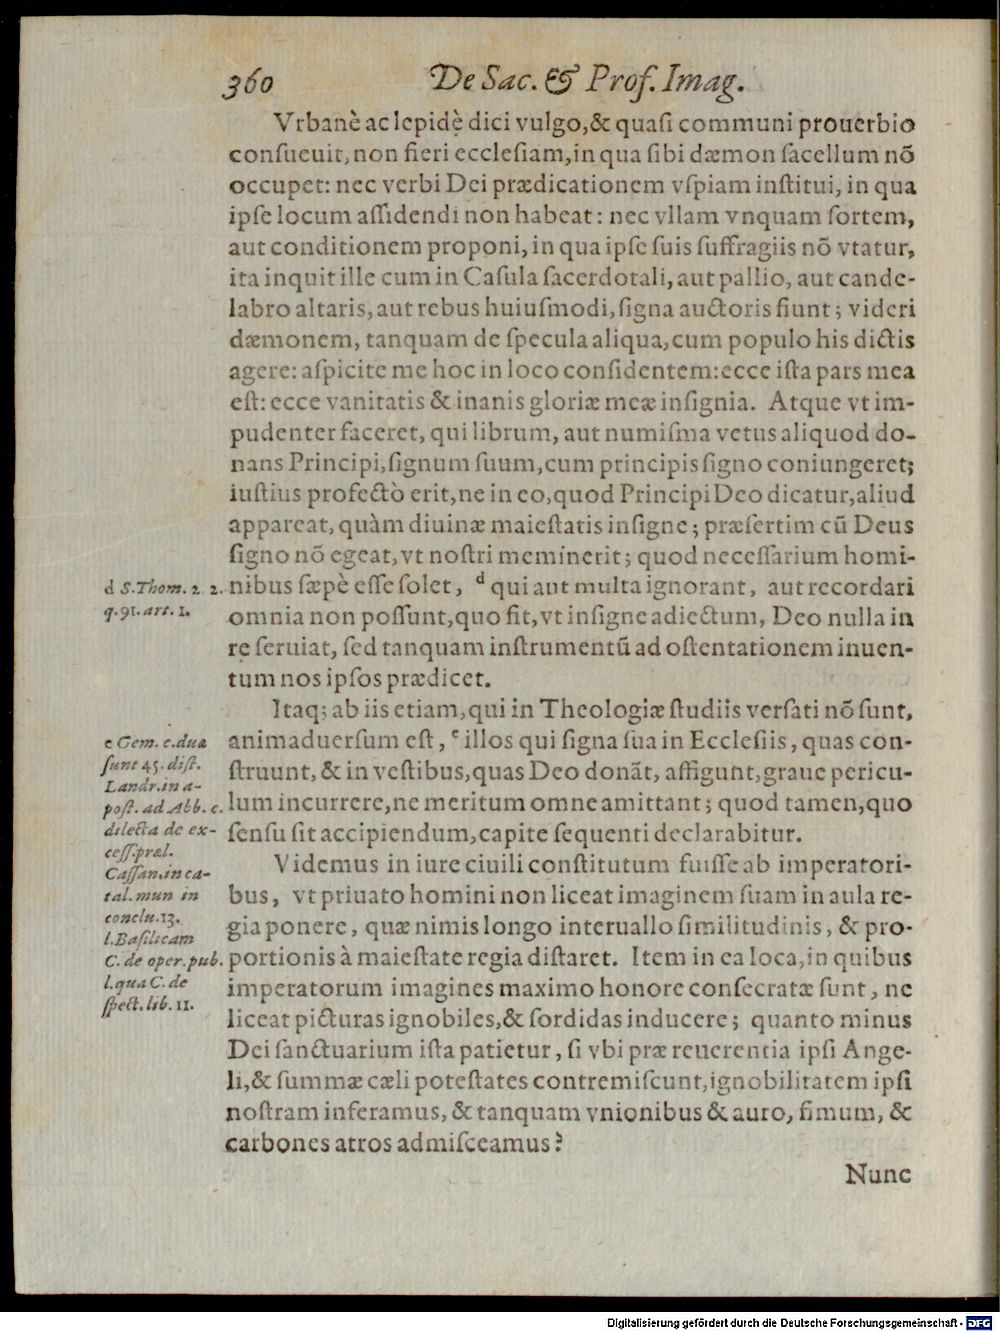 360 De Sac. & Prof. Imag.
Vrbanè ac lepidè dici vulgo, & quasi communi prouerbio
consueuit, non fieri ecclesiam, in qua sibi dæmon sacellum nõ
occupet: nec verbi Dei prædicationem vspiam institui, in qua
ipse locum assidendi non habeat: nec vllam vnquam sortem,
aut conditionem proponi, in qua ipse suis suffragiis nõ vtatur,
ita inquit ille cum in Casula sacerdotali, aut pallio, aut cande-
labro altaris, aut rebus huiusmodi, signa auctoris fiunt; videri
dæmonem, tanquam de specula aliqua, cum populo his dictis
agere: aspicite me hoc in loco considentem: ecce ista pars mea
est: ecce vanitatis & inanis gloriæ meæ insignia. Atque vt im-
pudenter faceret, qui librum, aut numisma vetus aliquod do-
nans Principi, signum suum, cum principis signo coniungeret;
iustius profectò erit, ne in eo, quod Principi Deo dicatur, aliud
appareat, quàm diuinæ maiestatis insigne; præsertim cũ Deus
signo nõ egeat, vt nostri meminerit; quod necessarium homi-
nibus sæpè esse solet, d qui aut multa ignorant, aut recordari
omnia non possunt, quo fit, vt insigne adiectum, Deo nulla in
re seruiat, sed tanquam instrumentũ ad ostentationem inuen-
tum nos ipsos prædicet.
d S. Thom. 2 2.
q. 91. art. 1.
Itaq; ab iis etiam, qui in Theologiæ studiis versati nõ sunt,
animaduersum est, e illos qui signa sua in Ecclesiis, quas con-
struunt, & in vestibus, quas Deo donãt, affigunt, graue pericu-
lum incurrere, ne meritum omne amittant; quod tamen, quo
sensu sit accipiendum, capite sequenti declarabitur.
e Gem. c. duæ
sunt 45. dist.
Landr. in a-
post. ad Abb. c.
dilecta de ex-
cess. præl.
Cassan. in ca-
tal. mun in
conclu. 13.
l. Basilicam
C. de oper. pub.
l. qua C. de
spect. lib. 11.
Videmus in iure ciuili constitutum fuisse ab imperatori-
bus, vt priuato homini non liceat imaginem suam in aula re-
gia ponere, quæ nimis longo interuallo similitudinis, & pro-
portionis à maiestate regia distaret. Item in ea loca, in quibus
imperatorum imagines maximo honore consecratæ sunt, ne
liceat picturas ignobiles, & sordidas inducere; quanto minus
Dei sanctuarium ista patietur, si vbi præ reuerentia ipsi Ange-
li, & summæ cæli potestates contremiscunt, ignobilitatem ipsi
nostram inferamus, & tanquam vnionibus & auro, fimum, &
carbones atros admisceamus?
Nunc
Digitalisierung gefördert durch die Deutsche Forschungsgemeinschaft - DFG